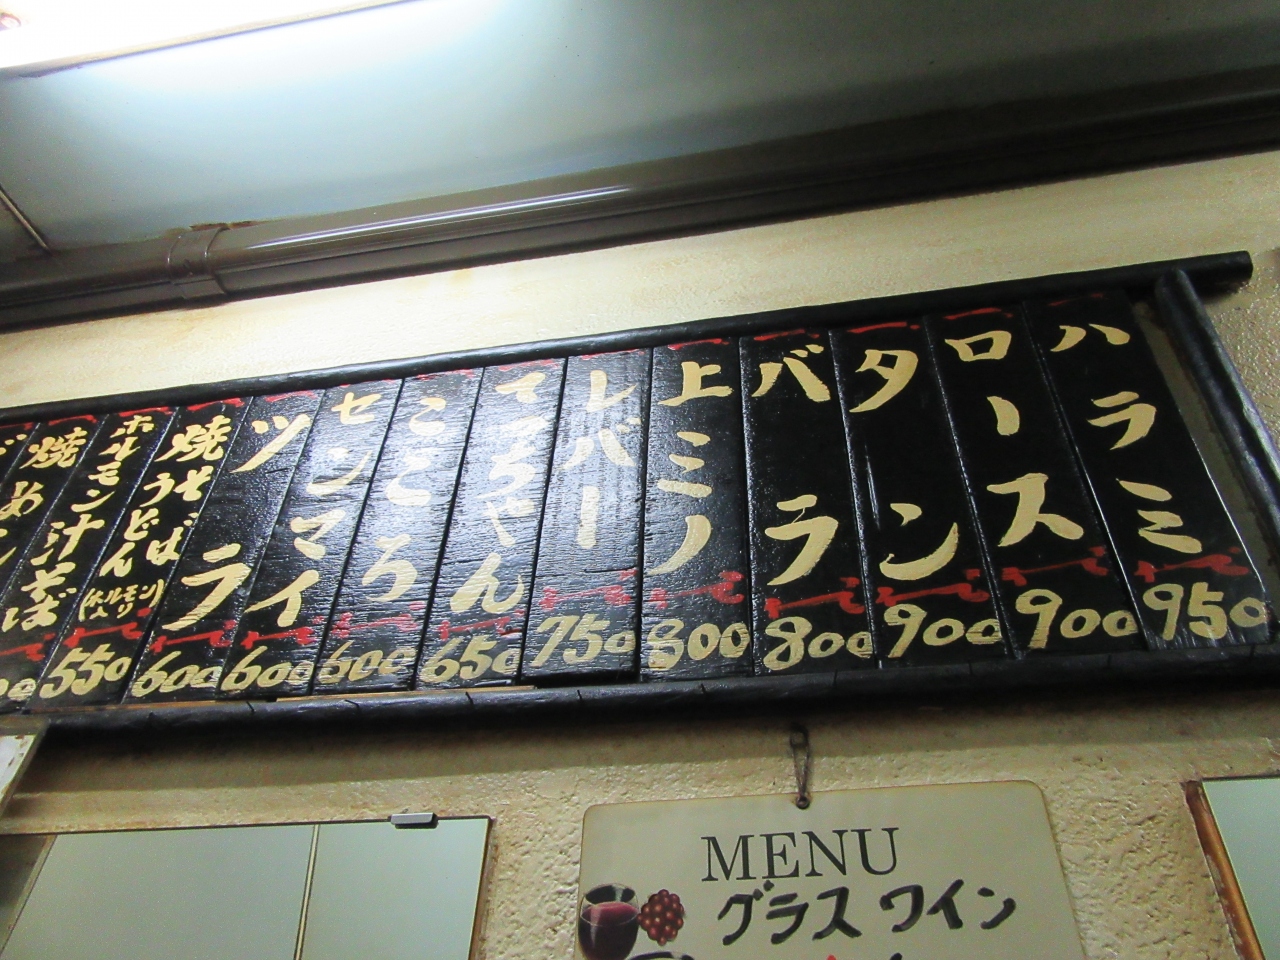 ハラミ
950
ロース
900
タン
900
バラ
800
上ミノ
800
レバー
750
てっちゃん
650
こころ
600
センマイ
600
ツラ
600
焼そば
うどん
(ホルモン入り)
550
ホルモン汁そば
MENU
グラスワイン